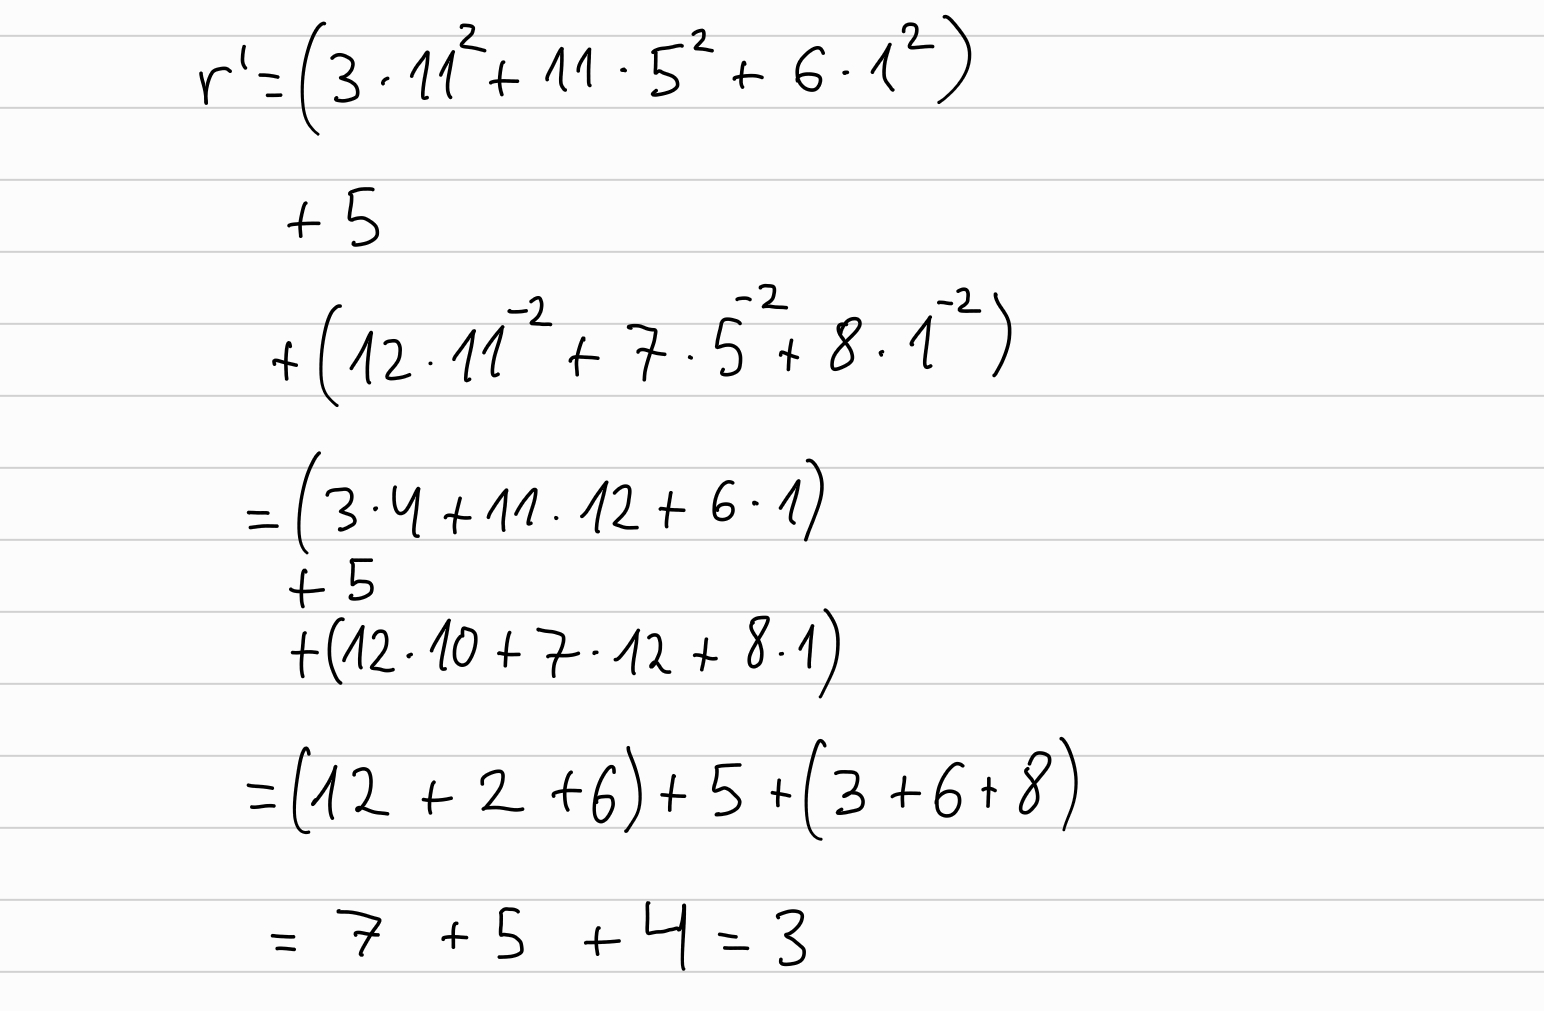 r' = (3 · 11² + 11 · 5² + 6 · 1²)
+ 5
+ (12 · 11⁻² + 7 · 5⁻² + 8 · 1⁻²)
= (3 · 4 + 11 · 12 + 6 · 1)
+ 5
+ (12 · 10 + 7 · 12 + 8 · 1)
= (12 + 2 + 6) + 5 + (3 + 6 + 8)
= 7 + 5 + 4 = 3